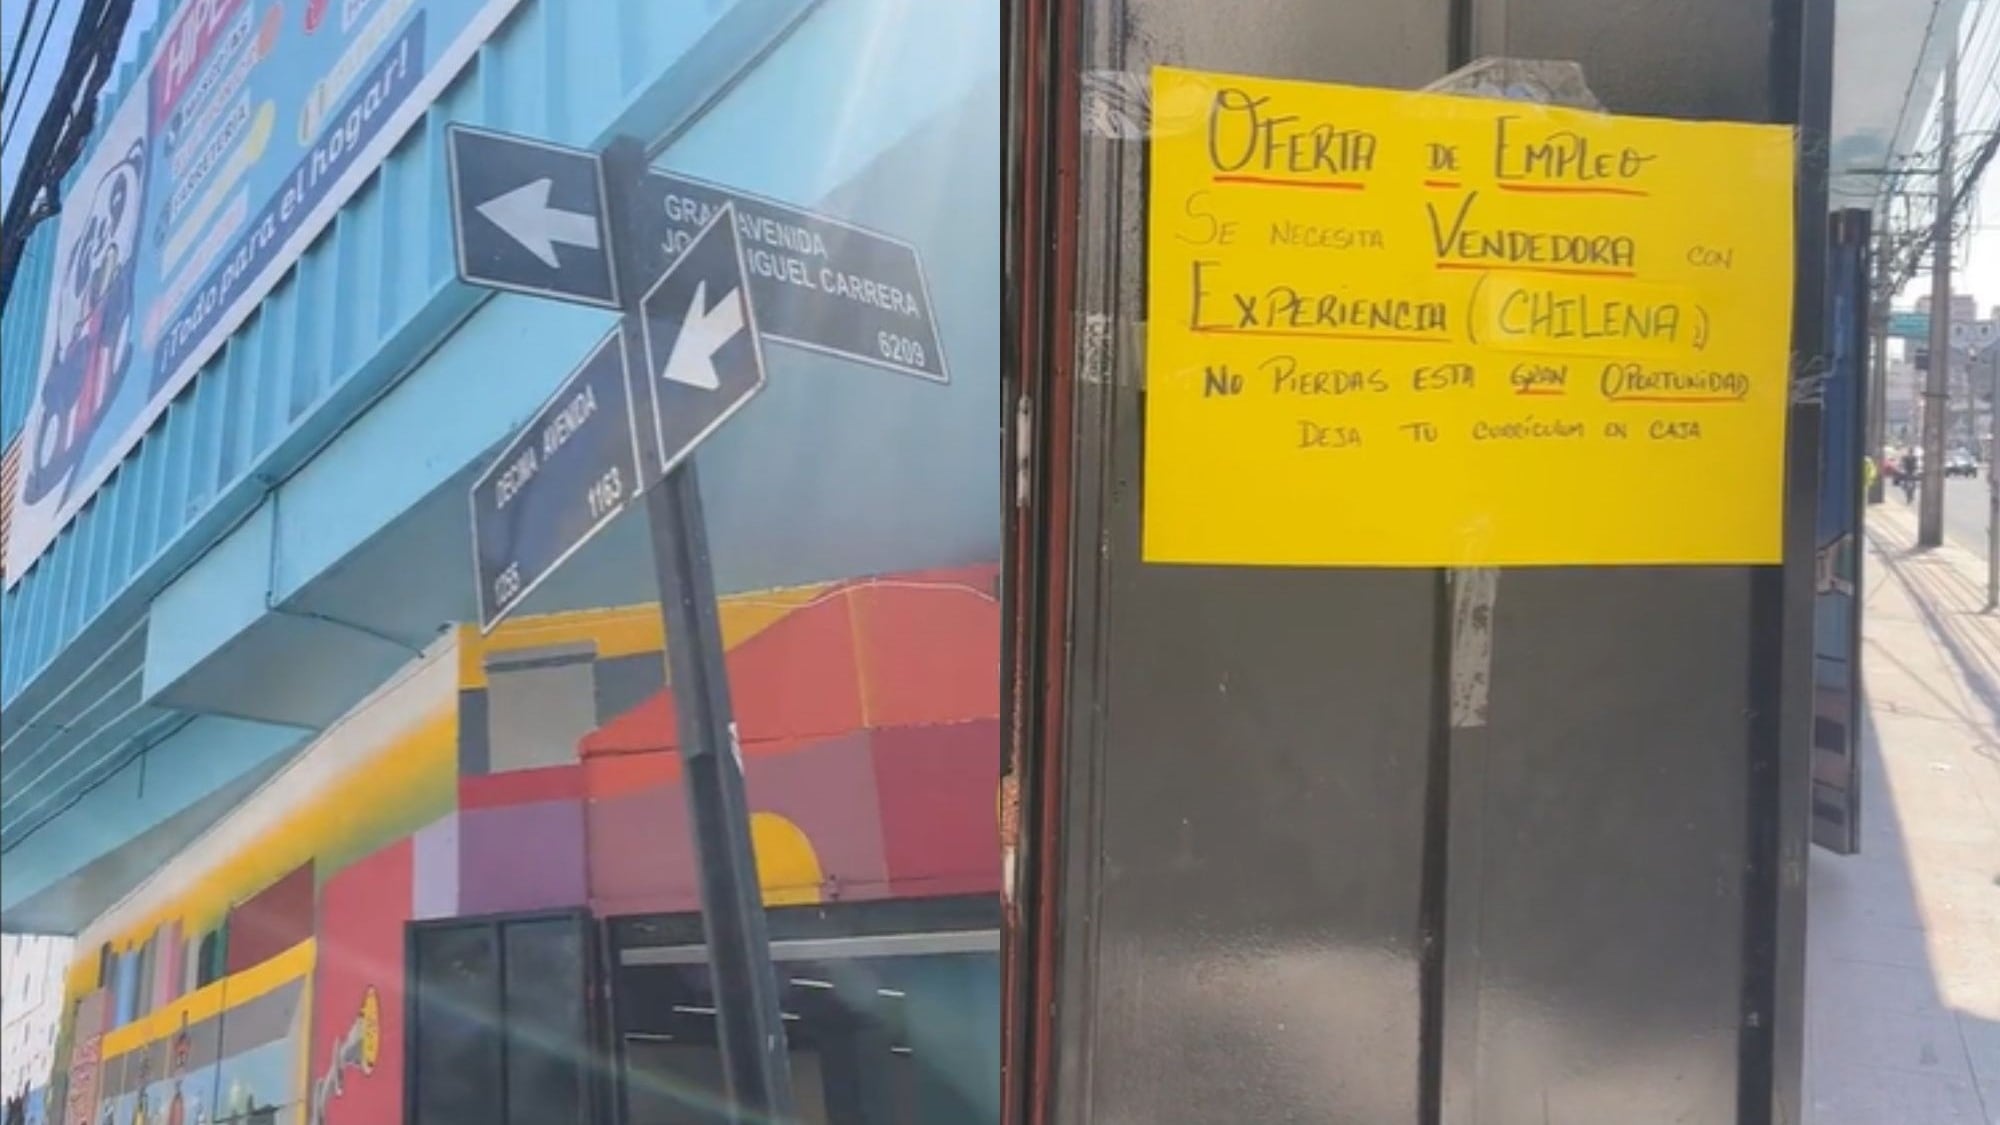 HIPE
MASCOTAS
FERRETERÍA
¡Todo para el hogar!
GRAN AVENIDA
JO IGUEL CARRERA
6209
DECIMA AVENIDA
1163
1255
OFERTA DE EMPLEO
SE NECESITA VENDEDORA CON
EXPERIENCIA (CHILENA)
NO PIERDAS ESTA GRAN OPORTUNIDAD
DEJA TU CURRÍCULUM EN CAJA